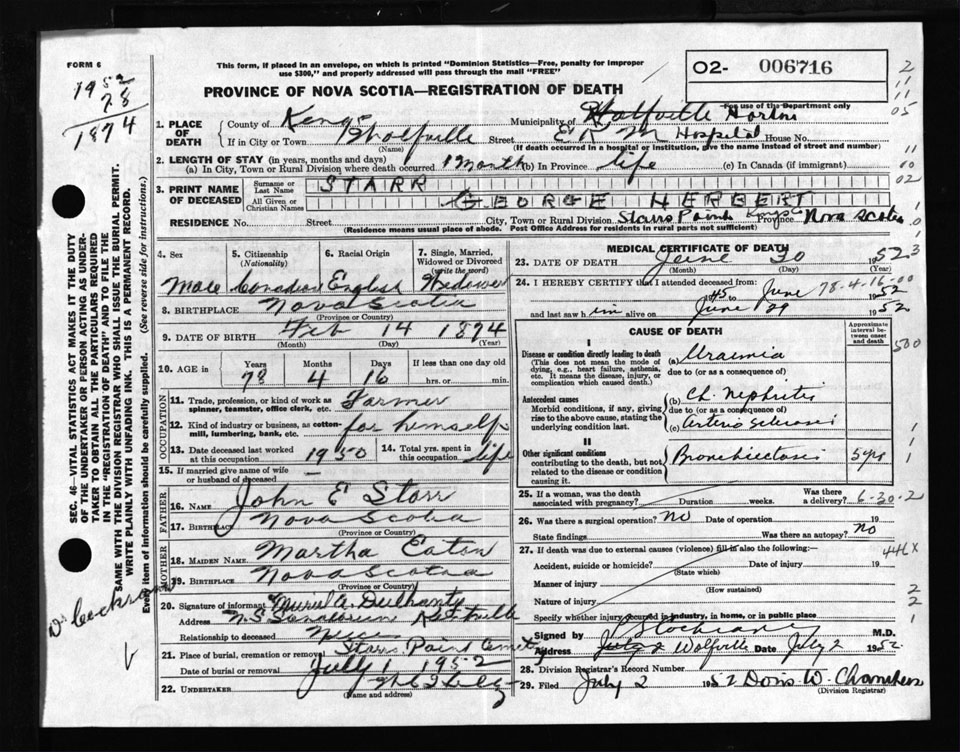 FORM 6
1952
78
1874
This form, if placed in an envelope, on which is printed "Dominion Statistics—Free, penalty for improper
use $300," and properly addressed will pass through the mail "FREE"
02- 006716
For use of the Department only
PROVINCE OF NOVA SCOTIA—REGISTRATION OF DEATH
1. PLACE OF DEATH
County of Kings Municipality of Wolfville Horton
If in City or Town Wolfville Street E K M Hospital House No.
(Name) (If death occurred in a hospital or institution, give the name instead of street and number)
2. LENGTH OF STAY (in years, months and days)
(a) In City, Town or Rural Division where death occurred 1 Month (b) In Province life (c) In Canada (if immigrant)
3. PRINT NAME OF DECEASED
Surname or Last Name STARR
All Given or Christian Names GEORGE HERBERT
RESIDENCE No. Street City, Town or Rural Division Starrs Point Kings Co Province Nova Scotia
(Residence means usual place of abode. Post Office Address for residents in rural parts not sufficient)
4. Sex Male
5. Citizenship (Nationality) Canadian
6. Racial Origin English
7. Single, Married, Widowed or Divorced (write the word) Widower
8. BIRTHPLACE Nova Scotia
(Province or Country)
9. DATE OF BIRTH Feb 14 1874
(Month) (Day) (Year)
10. AGE in Years 78 Months 4 Days 16 If less than one day old hrs. or min.
OCCUPATION
11. Trade, profession, or kind of work as spinner, teamster, office clerk, etc. Farmer
12. Kind of industry or business, as cotton-mill, lumbering, bank, etc. for himself
13. Date deceased last worked at this occupation 1950
14. Total yrs. spent in this occupation life
15. If married give name of wife or husband of deceased —
FATHER
16. NAME John E Starr
17. BIRTHPLACE Nova Scotia
(Province or Country)
MOTHER
18. MAIDEN NAME Martha Eaton
19. BIRTHPLACE Nova Scotia
(Province or Country)
20. Signature of informant Muriel A. Dulhanty
Address N.S. Sanatorium Kentville
Relationship to deceased Niece
21. Place of burial, cremation or removal Starrs Point Cemetery
Date of burial or removal July 1 1952
22. UNDERTAKER
(Name and address)
MEDICAL CERTIFICATE OF DEATH
23. DATE OF DEATH June 30 1952
(Month) (Day) (Year)
24. I HEREBY CERTIFY that I attended deceased from:
1945 to June 1952
78-4-16
and last saw him alive on June 29 1952
CAUSE OF DEATH
Approximate interval between onset and death
I
Disease or condition directly leading to death
(This does not mean the mode of dying, e.g., heart failure, asthenia, etc. It means the disease, injury, or complication which caused death.)
(a) Uraemia
due to (or as a consequence of)
Antecedent causes
Morbid conditions, if any, giving rise to the above cause, stating the underlying condition last.
(b) Ch. Nephritis
due to (or as a consequence of)
(c) Arterio sclerosis
II
Other significant conditions
contributing to the death, but not related to the disease or condition causing it.
Bronchiectasis 5 yrs
25. If a woman, was the death associated with pregnancy? Duration weeks. Was there a delivery?
6-30-2
26. Was there a surgical operation? No Date of operation 19
State findings Was there an autopsy? No
27. If death was due to external causes (violence) fill in also the following:
446X
Accident, suicide or homicide? Date of injury 19
(State which)
Manner of injury
(How sustained)
Nature of injury
Specify whether injury occurred in industry, in home, or in public place
Signed by M.D.
Address Wolfville Date July 2 1952
28. Division Registrar's Record Number
29. Filed July 2 1952 Doris W. Chambers
(Division Registrar)
SEC. 46—VITAL STATISTICS ACT MAKES IT THE DUTY
OF THE UNDERTAKER OR PERSON ACTING AS UNDER-
TAKER TO OBTAIN ALL THE PARTICULARS REQUIRED
IN THE "REGISTRATION OF DEATH" AND TO FILE THE
SAME WITH THE DIVISION REGISTRAR WHO SHALL ISSUE THE BURIAL PERMIT.
WRITE PLAINLY WITH UNFADING INK. THIS IS A PERMANENT RECORD.
Every item of information should be carefully supplied. (See reverse side for instructions.)
2
11
11
05
11
00
02
500
1
2
2
1